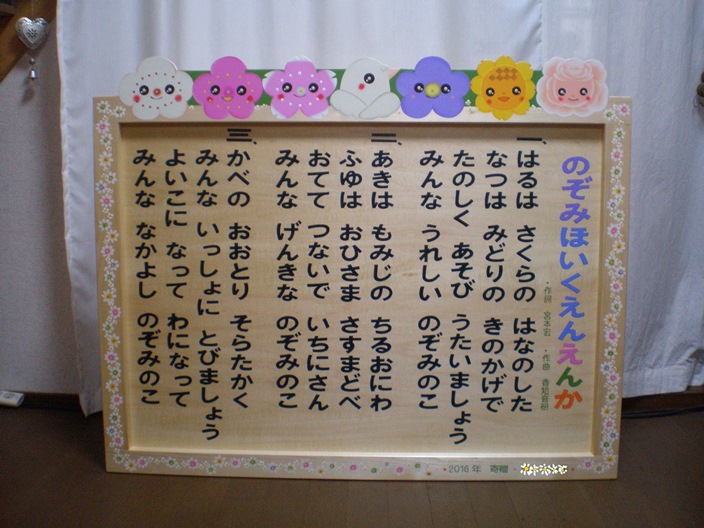 のぞみほいくえんえんか
・作詞 宮本宏 ・作曲
一、はるは さくらの はなのした
なつは みどりの きのかげで
たのしく あそび うたいましょう
みんな うれしい のぞみのこ
二、あきは もみじの ちるおにわ
ふゆは おひさま さすまどべ
おてて つないで いちにさん
みんな げんきな のぞみのこ
三、かべの おおとり そらたかく
みんな いっしょに とびましょう
よいこに なって わになって
みんな なかよし のぞみのこ
・2016年 寄贈・